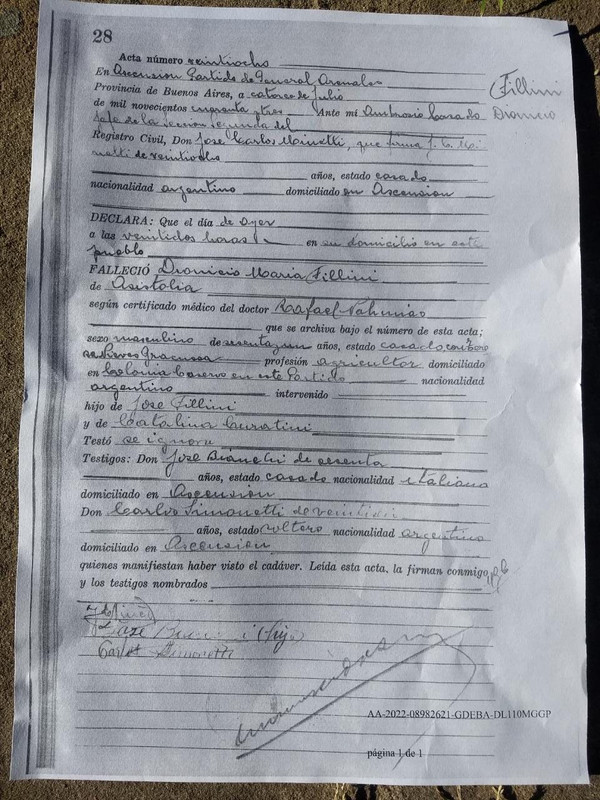 28
Fillini
Dionicio
Acta número veintiocho
En Ascension Partido de General Arenales
Provincia de Buenos Aires, a catorce de Julio
de mil novecientos cincuenta y tres Ante mi Ambrosio Casado
Jefe de la seccion segunda del
Registro Civil, Don Jose Carlos que firma J. C.
de veintiocho
años, estado casado
nacionalidad argentino domiciliado en Ascension
DECLARA: Que el día de ayer
a las veintidos horas en su domicilio en este
pueblo
FALLECIÓ Dionicio Maria Fillini
de Asistolia
según certificado médico del doctor Rafael
que se archiva bajo el número de esta acta;
sexo masculino de sesenta y un años, estado casado con
profesión agricultor domiciliado
en Colonia en este Partido nacionalidad
argentino intervenido
hijo de Jose Fillini
y de Catalina
Testó se ignora
Testigos: Don Jose Bianchi de sesenta
años, estado casado nacionalidad italiana
domiciliado en Ascension
Don Carlos Simonetti de
años, estado soltero nacionalidad argentino
domiciliado en Ascension
quienes manifiestan haber visto el cadáver. Leída esta acta, la firman conmigo,
y los testigos nombrados
Carlos Simonetti
AA-2022-08982621-GDEBA-DL110MGGP
página 1 de 1